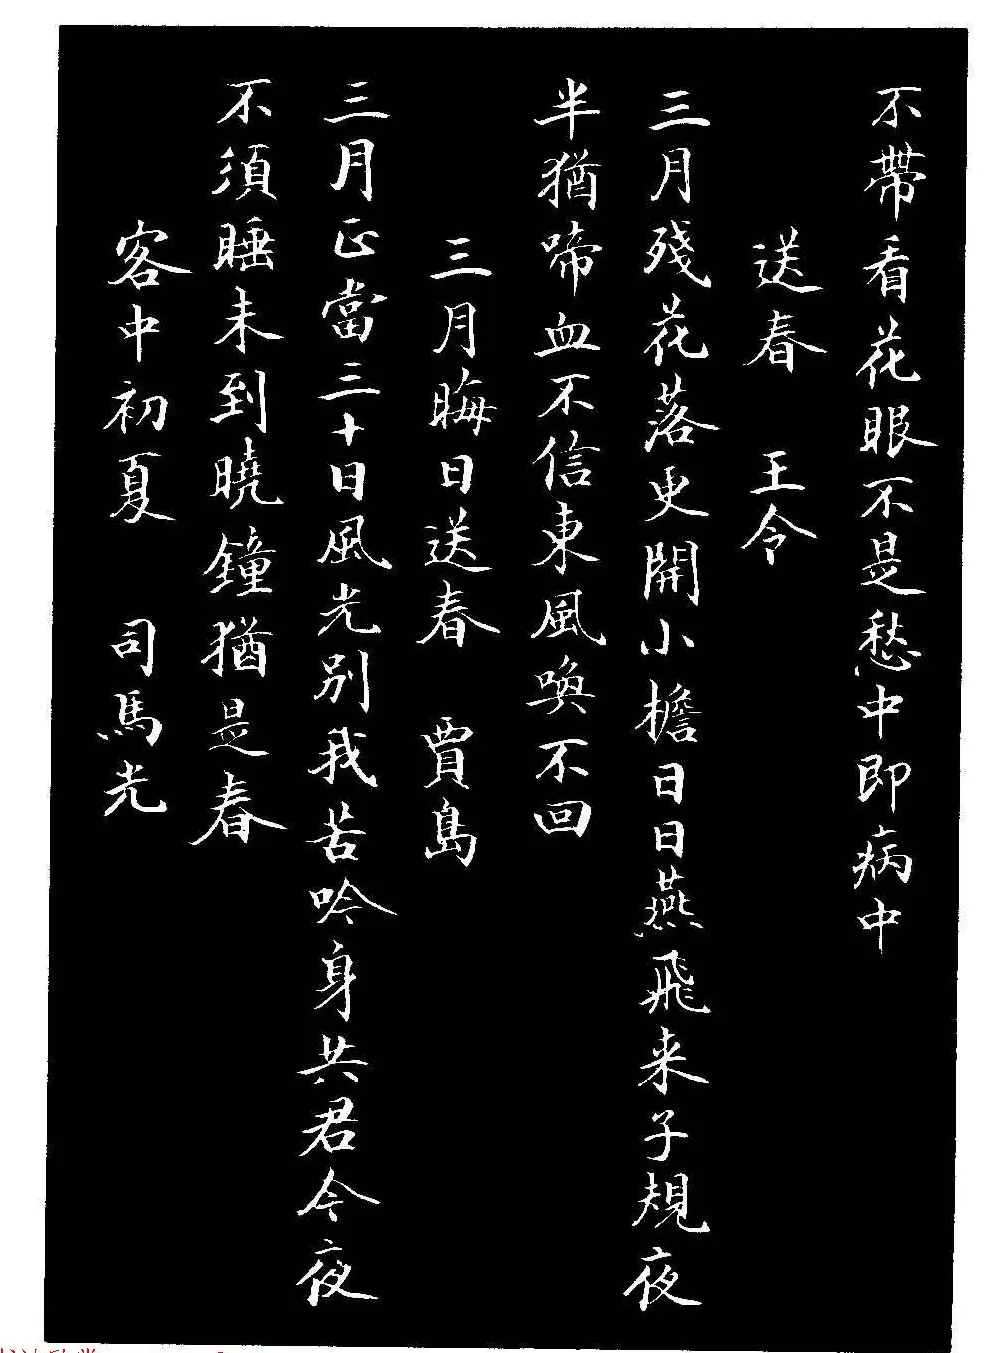 不帶看花眼不是愁中即病中
送春 王令
三月殘花落更開小檐日日燕飛来子規夜
半猶啼血不信東風喚不回
三月晦日送春 賈島
三月正當三十日風光別我苦吟身共君今夜
不須睡未到曉鐘猶是春
客中初夏 司馬光